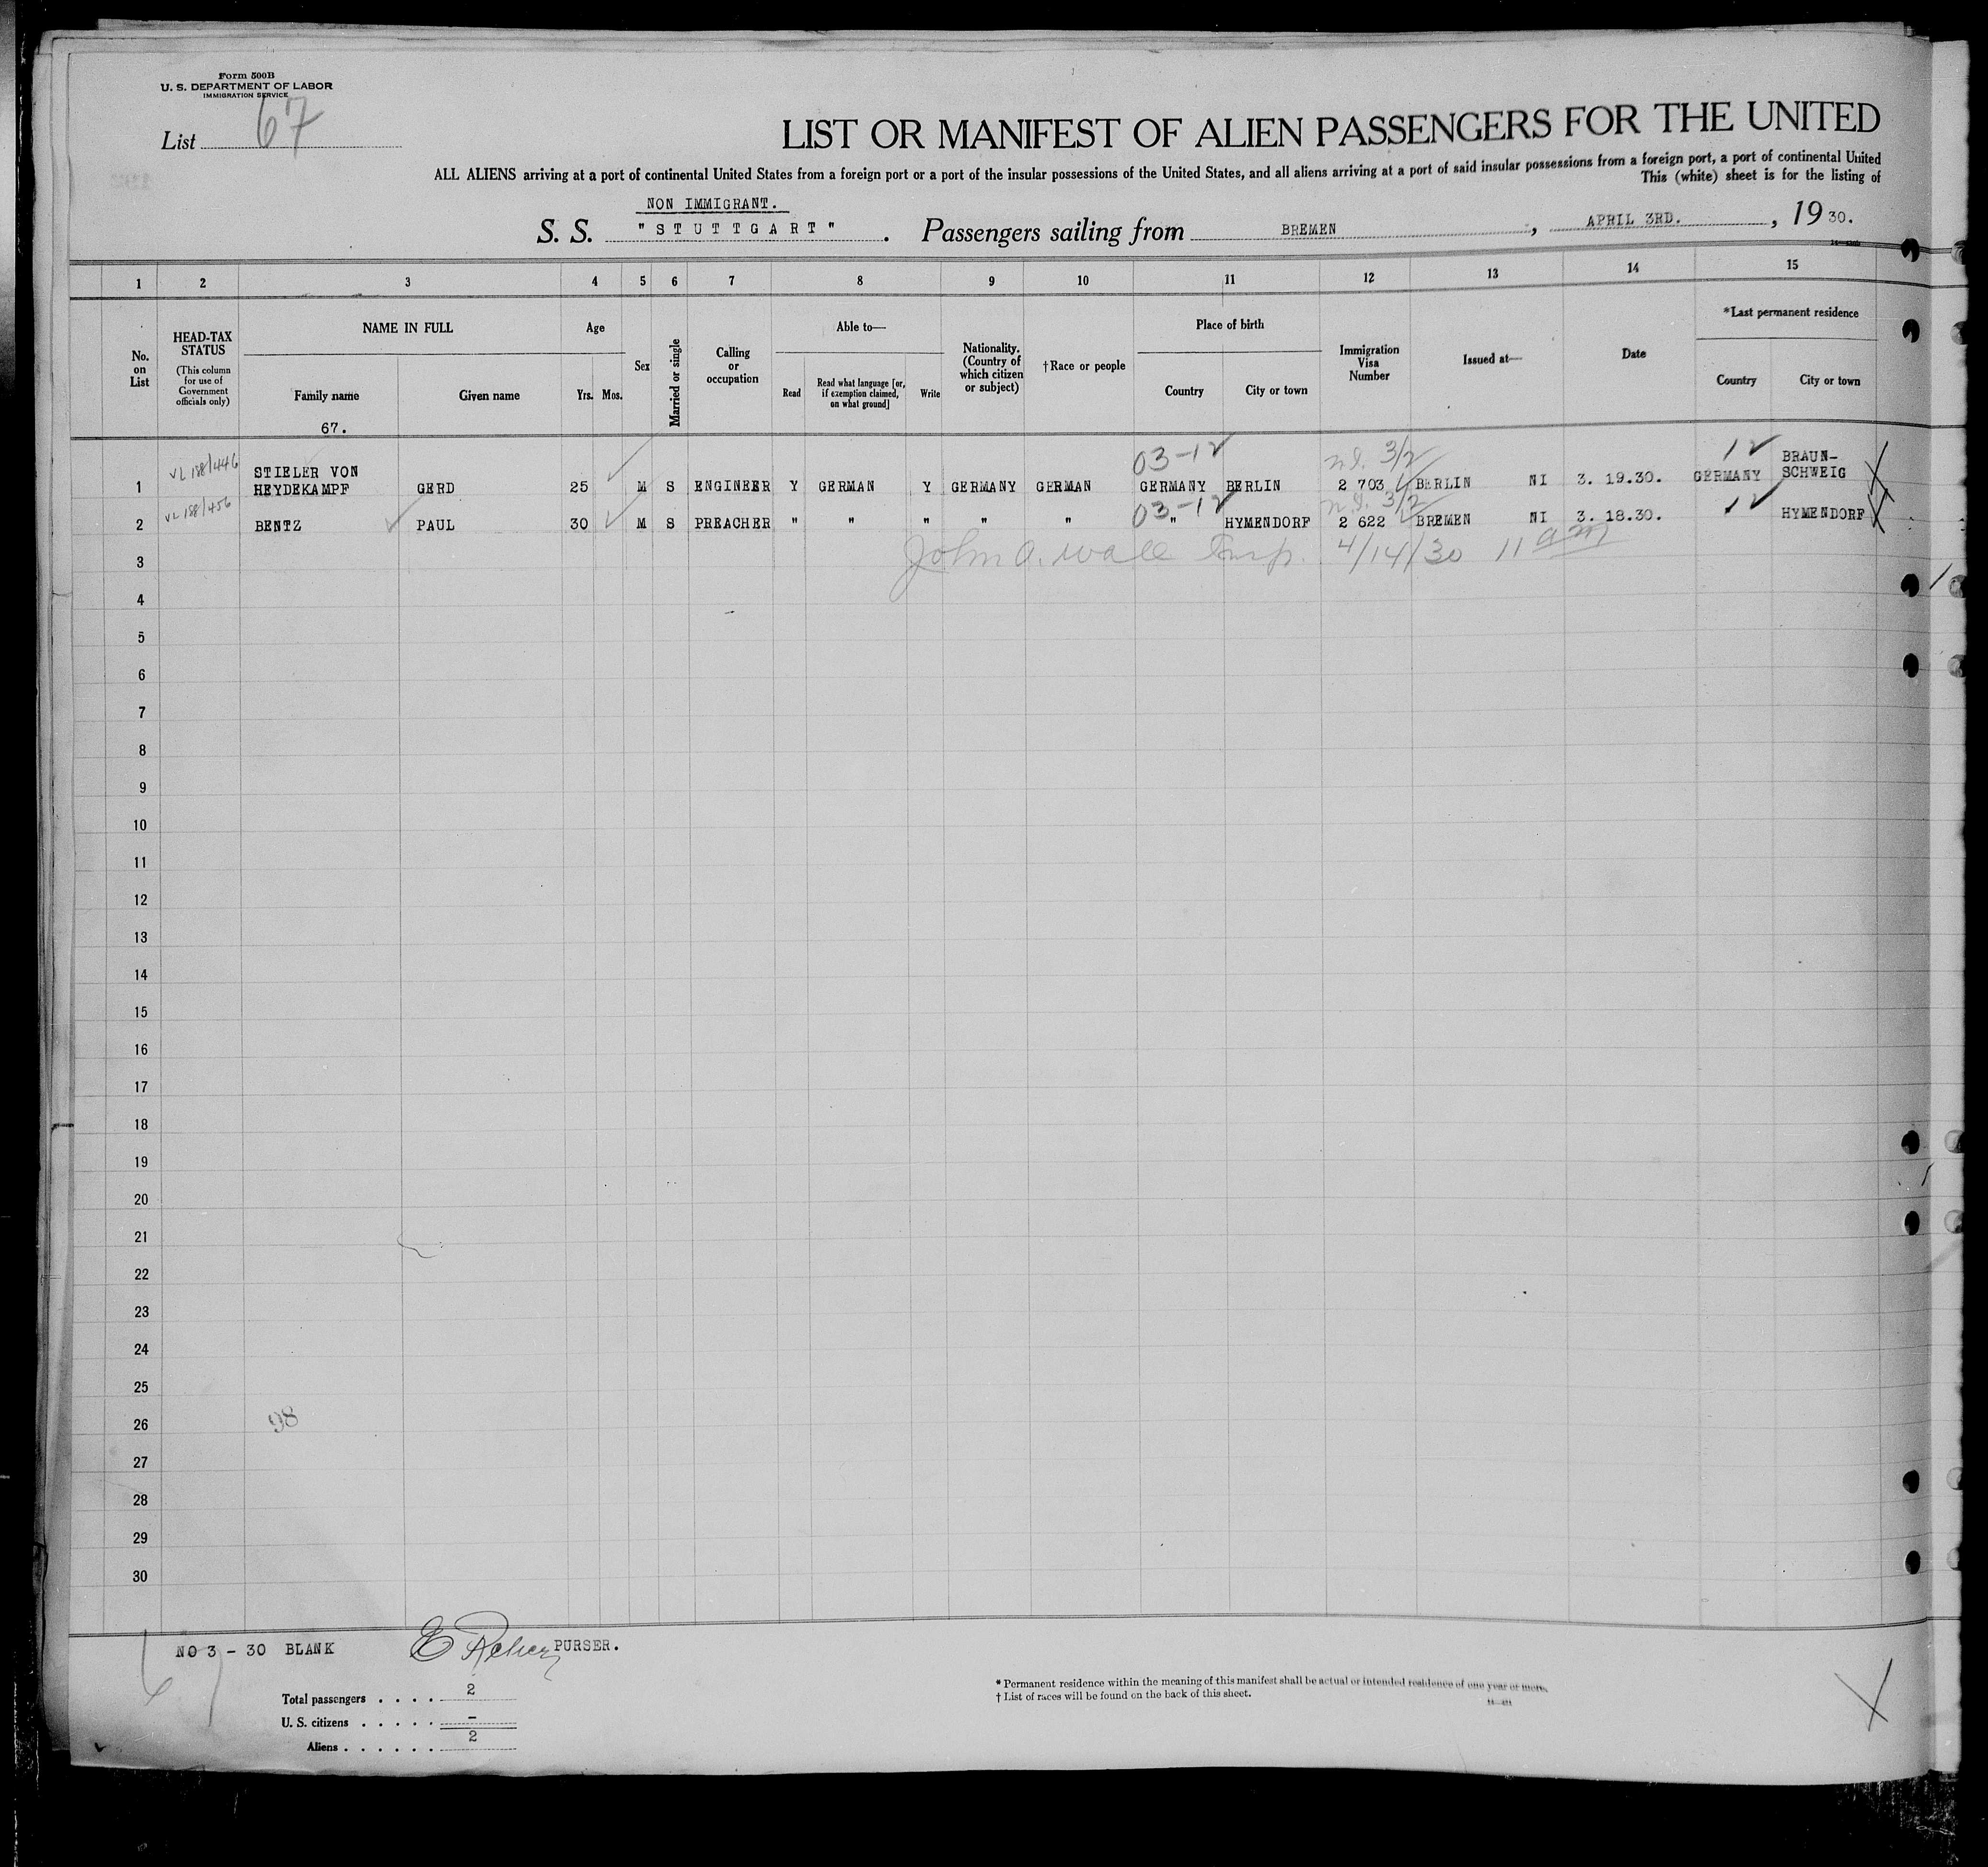 Form 500B
U. S. DEPARTMENT OF LABOR
IMMIGRATION SERVICE
List 67
LIST OR MANIFEST OF ALIEN PASSENGERS FOR THE UNITED
ALL ALIENS arriving at a port of continental United States from a foreign port or a port of the insular possessions of the United States, and all aliens arriving at a port of said insular possessions from a foreign port, a port of continental United
This (white) sheet is for the listing of
NON IMMIGRANT.
S. S. "STUTTGART". Passengers sailing from BREMEN, APRIL 3RD., 19 30.
1 2 3 4 5 6 7 8 9 10 11 12 13 14 15
No. on List
HEAD-TAX STATUS
(This column for use of Government officials only)
NAME IN FULL
Family name
Given name
67.
Age
Yrs. Mos.
Sex
Married or single
Calling or occupation
Able to—
Read
Read what language [or, if exemption claimed, on what ground]
Write
Nationality. (Country of which citizen or subject)
†Race or people
Place of birth
Country
City or town
Immigration Visa Number
Issued at—
Date
*Last permanent residence
Country
City or town
03-12 n.I. 3/2 1 BRAUN-
VL 188/446 STIELER VON SCHWEIG
1 HEYDEKAMPF GERD 25 M S ENGINEER Y GERMAN Y GERMANY GERMAN GERMANY BERLIN 2 703 BERLIN NI 3. 19.30. GERMANY
VL 188/456 03-12 n.I. 3/2 1
2 BENTZ PAUL 30 M S PREACHER " " " " " " HYMENDORF 2 622 BREMEN NI 3. 18.30. HYMENDORF
3 John A. Wall Insp. 4/14/30 11 am
4
5
6
7
8
9
10
11
12
13
14
15
16
17
18
19
20
21
22
23
24
25
26 98
27
28
29
30
NO 3 - 30 BLANK PURSER.
67
Total passengers . . . . 2
U. S. citizens . . . . . –
Aliens . . . . . . 2
* Permanent residence within the meaning of this manifest shall be actual or intended residence of one year or more.
† List of races will be found on the back of this sheet.